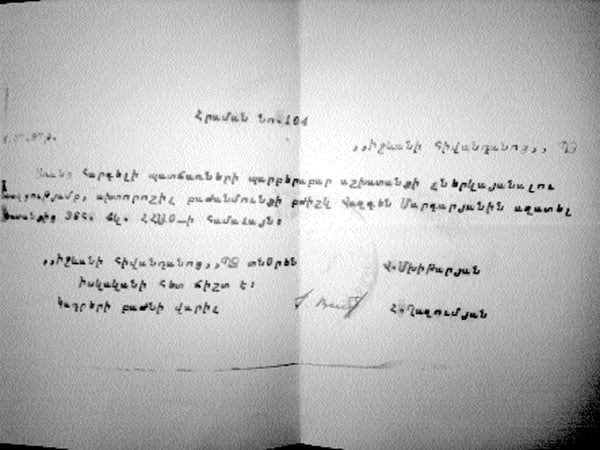 Հրաման Նո.104
,,Իջևանի Հիվանդանոց,, ՊՓ
Առանց հարգելի պատճառների պարբերաբար աշխատանքի չներկայանալու
կապակցությամբ, ախտորոշիչ բաժանմունքի բժիշկ Վազգեն Մարգարյանին ազատել
38Հ. 4կ. ՀՀԱՕ-ի համաձայն:
,,Իջևանի Հիվանդանոց,,ՊՓ տնօրեն Վ.Մխիթարյան
Իսկականի հետ ճիշտ է:
Կադրերի բաժնի վարիչ Հ.Ղազումյան